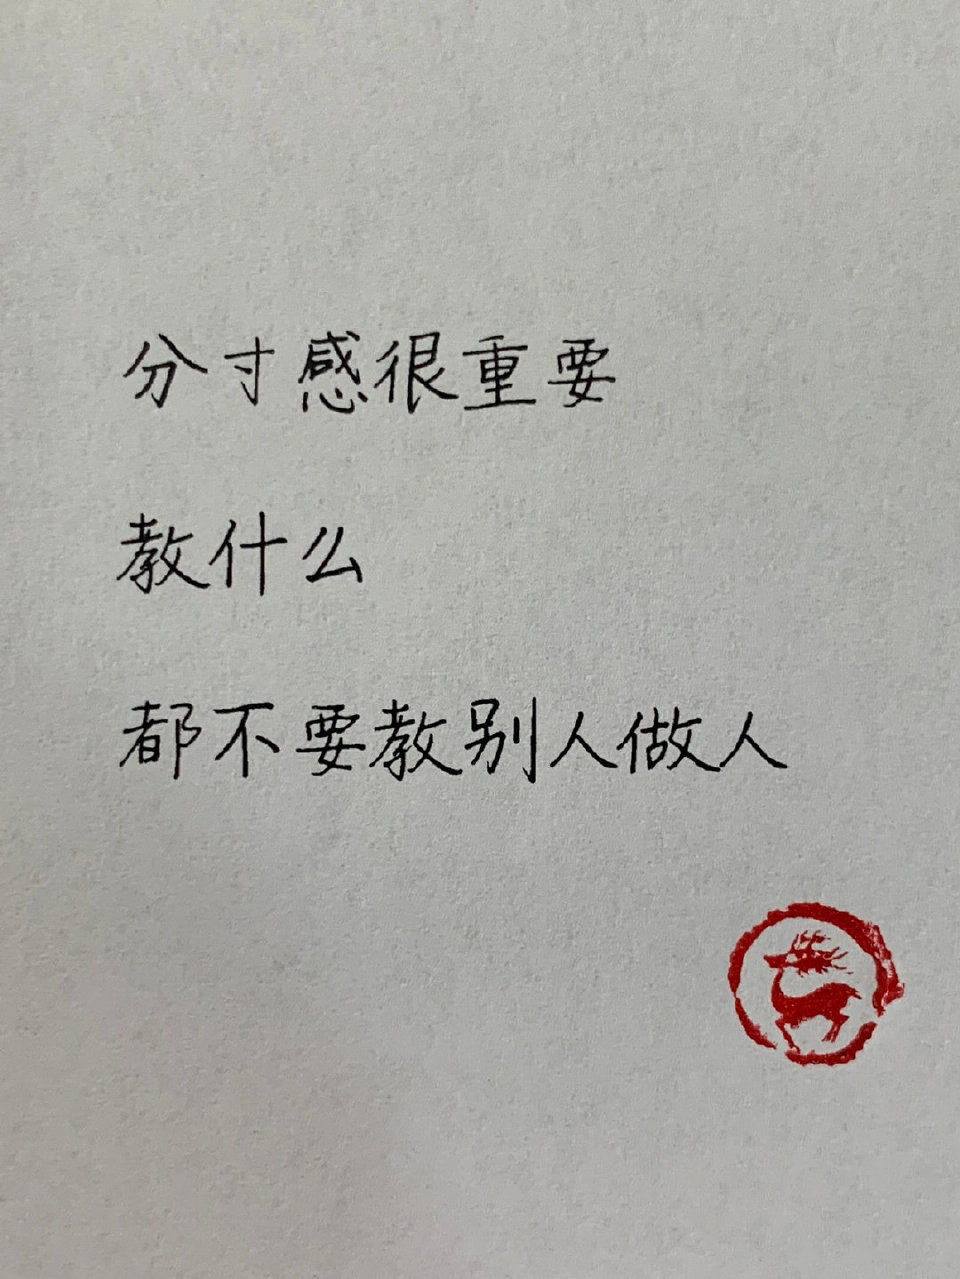 分寸感很重要
教什么
都不要教别人做人